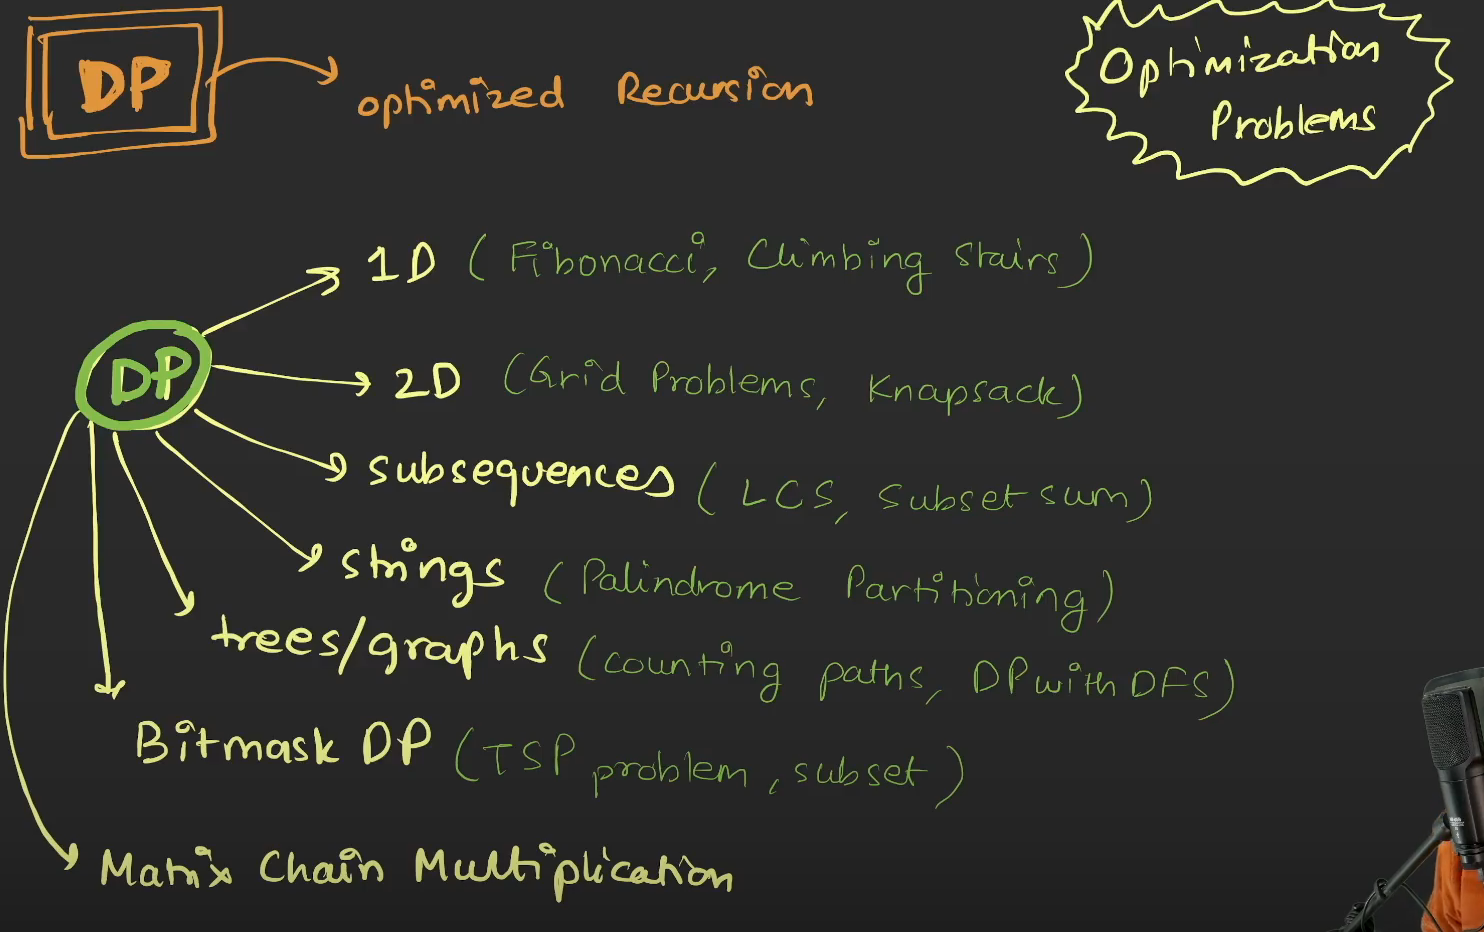 DP
optimized Recursion
Optimization
Problems
1D (Fibonacci, Climbing Stairs)
DP
2D (Grid Problems, Knapsack)
subsequences (LCS, Subset sum)
strings (Palindrome Partitioning)
trees/graphs (counting paths, DP with DFS)
Bitmask DP (TSP problem, subset)
Matrix Chain Multiplication